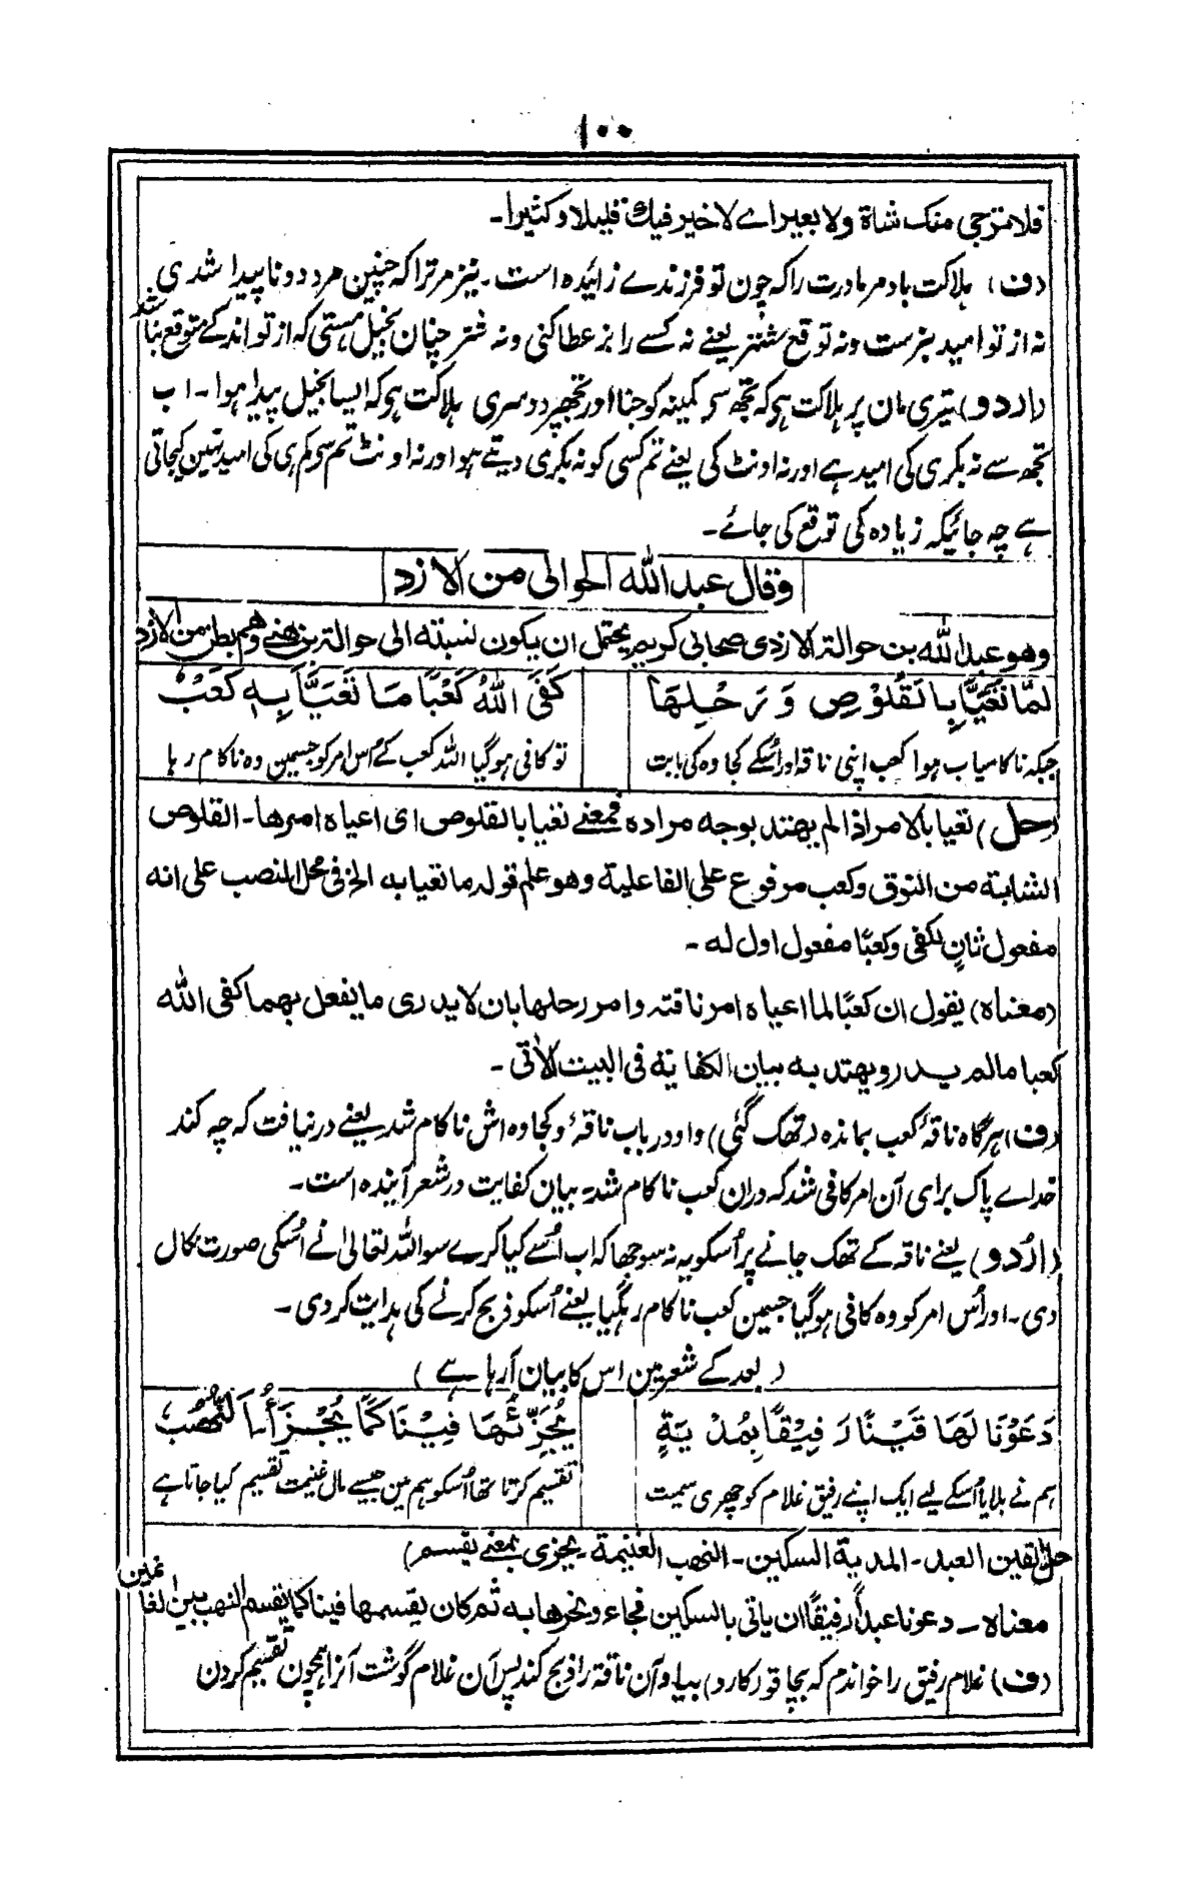 ۱۰۰
فلا مترجی منک شاة ولا بعیرا اے لا خیر فیك قلیلا و کثیرا۔
(ف) ہلاکت باد مر مادرت را کہ چون تو فرزندے زائیدہ است۔ نیز مر ترا کہ چنین مردد و نا پیدا شدی
نہ از تو امید بزست و نہ توقع شتر یعنے نہ کسے را بز عطا کنی و نہ شتر چنان بخیل ہستی کہ از تو اندکے متوقع نباشد
(اردو) تیری مان پر ہلاکت ہو کہ تجھ سے کمینہ کو جنا اور تجھپر دوسری ہلاکت ہو کہ ایسا بخیل پیدا ہوا۔ اب
تجھ سے نہ بکری کی امید ہے اور نہ اونٹ کی یعنے تم کسی کو نہ بکری دیتے ہو اور نہ اونٹ تم سے کم ہی کی امید نہین کیجاتی
ہے چہ جائیکہ زیادہ کی توقع کی جائے۔
وقال عبد الله الحوالی من الازد
وهو عبد الله بن حوالة الازدی صحابی کریم یحتمل ان یکون نسبته الی حوالة بن هنئ وهم بطن من الازد
لَمَّا تَعَیَّا بِالقَلُوْصِ وَ رَحْلِهَا
کَفَی اللهُ کَعْبًا مَا تَعَیَّا بِهٖ کَعْبُ
جبکہ ناکامیاب ہوا کعب اپنی ناقہ اور اُسکے کجاوہ کی بابت
تو کافی ہو گیا اللہ کعب کے اُس امر کو جسمین وہ ناکام رہا
(حل) تعیا بالامر اذا لم یهتد بوجه مراده فمعنے تعیا بالقلوص ای اعیاه امرها۔ القلوص
الشابة من النوق وکعب مرفوع علی الفاعلیة وهو علم قوله ما تعیا به الخ فی محل النصب علی انه
مفعول ثانٍ لکفی وکعبًا مفعول اول له۔
(معناه) یقول ان کعبًا لما اعیاه امر ناقته وامر رحلها بان لا یدری ما یفعل بهما کفی الله
کعبا ما لم یدر ویهتد به بیان الکفایة فی البیت الاٰتی۔
(ف) ہرگاہ ناقۂ کعب بماندہ (تھک گئی) و او در باب ناقۂ و کجاوہ اش ناکام شد یعنے در نیافت کہ چہ کند
خداے پاک برای آن امر کافی شد کہ دران کعب ناکام شد۔ بیان کفایت در شعر آیندہ است۔
(اردو) یعنے ناقہ کے تھک جانے پر اُسکو یہ نہ سوجھا کہ اب اُسے کیا کرے سو اللہ تعالیٰ نے اُسکی صورت نکال
دی۔ اور اُس امر کو وہ کافی ہو گیا جسمین کعب ناکام رہگیا یعنے اُسکو ذبح کرنے کی ہدایت کردی۔
(بعد کے شعر مین اس کا بیان آ رہا ہے)
دَعَوْنَا لَهَا قَیْنًا رَفِیْقًا بِمُدْیَةٍ
یُجَزِّئُهَا فِیْنَا کَمَا یُجْزَأُ النَّهْبُ
ہم نے بلایا اُسکے لیے ایک اپنے رفیق غلام کو چھری سمیت
تقسیم کرتا تھا اُسکو ہم مین جیسے مال غنیمت تقسیم کیا جاتا ہے
حل القین العبد۔ المدیة السکین۔ النهب الغنیمة۔ یجزی بمعنے یقسم)
معناه۔ دعونا عبدًا رفیقًا ان یاتی بالسکین فجاء ونحرها به ثم کان یقسمها فینا کما یقسم النهب بین الغانمین
(ف) غلام رفیق را خواندم کہ بچاقو (کارد) بیاد و آن ناقہ را ذبح کند پس آن غلام گوشت آنرا ہمچون تقسیم کردن